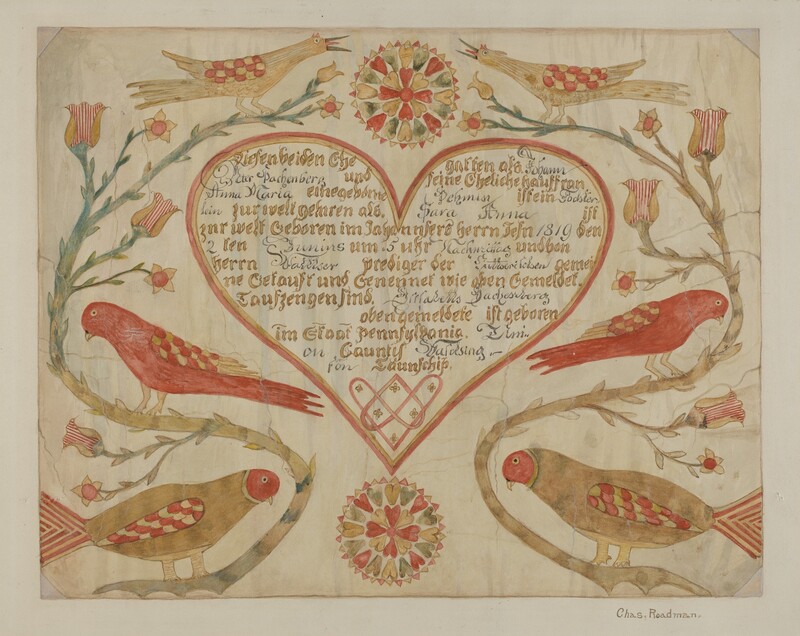 Diesen beiden Ehe gatten als Johann
Peter Dachenberg und seine Eheliche hausfrau
Anna Maria eine geborne Dehmin ist ein Tochter
lein zur welt gehoren als. Sara Anna ist
zur welt Geboren im Jahr unsers herrn Jesu 1819 den
2 ten Junius um 5 uhr Nachmittag und von
herrn prediger der gemei
ne Getauft und Genennet wie oben Gemeldet.
Taufzeugen sind. Elisabeth Dachenberg
oben gemeldete ist geboren
im Staat pennsylvania.
Caunti
Taunschip.
Chas. Roadman.